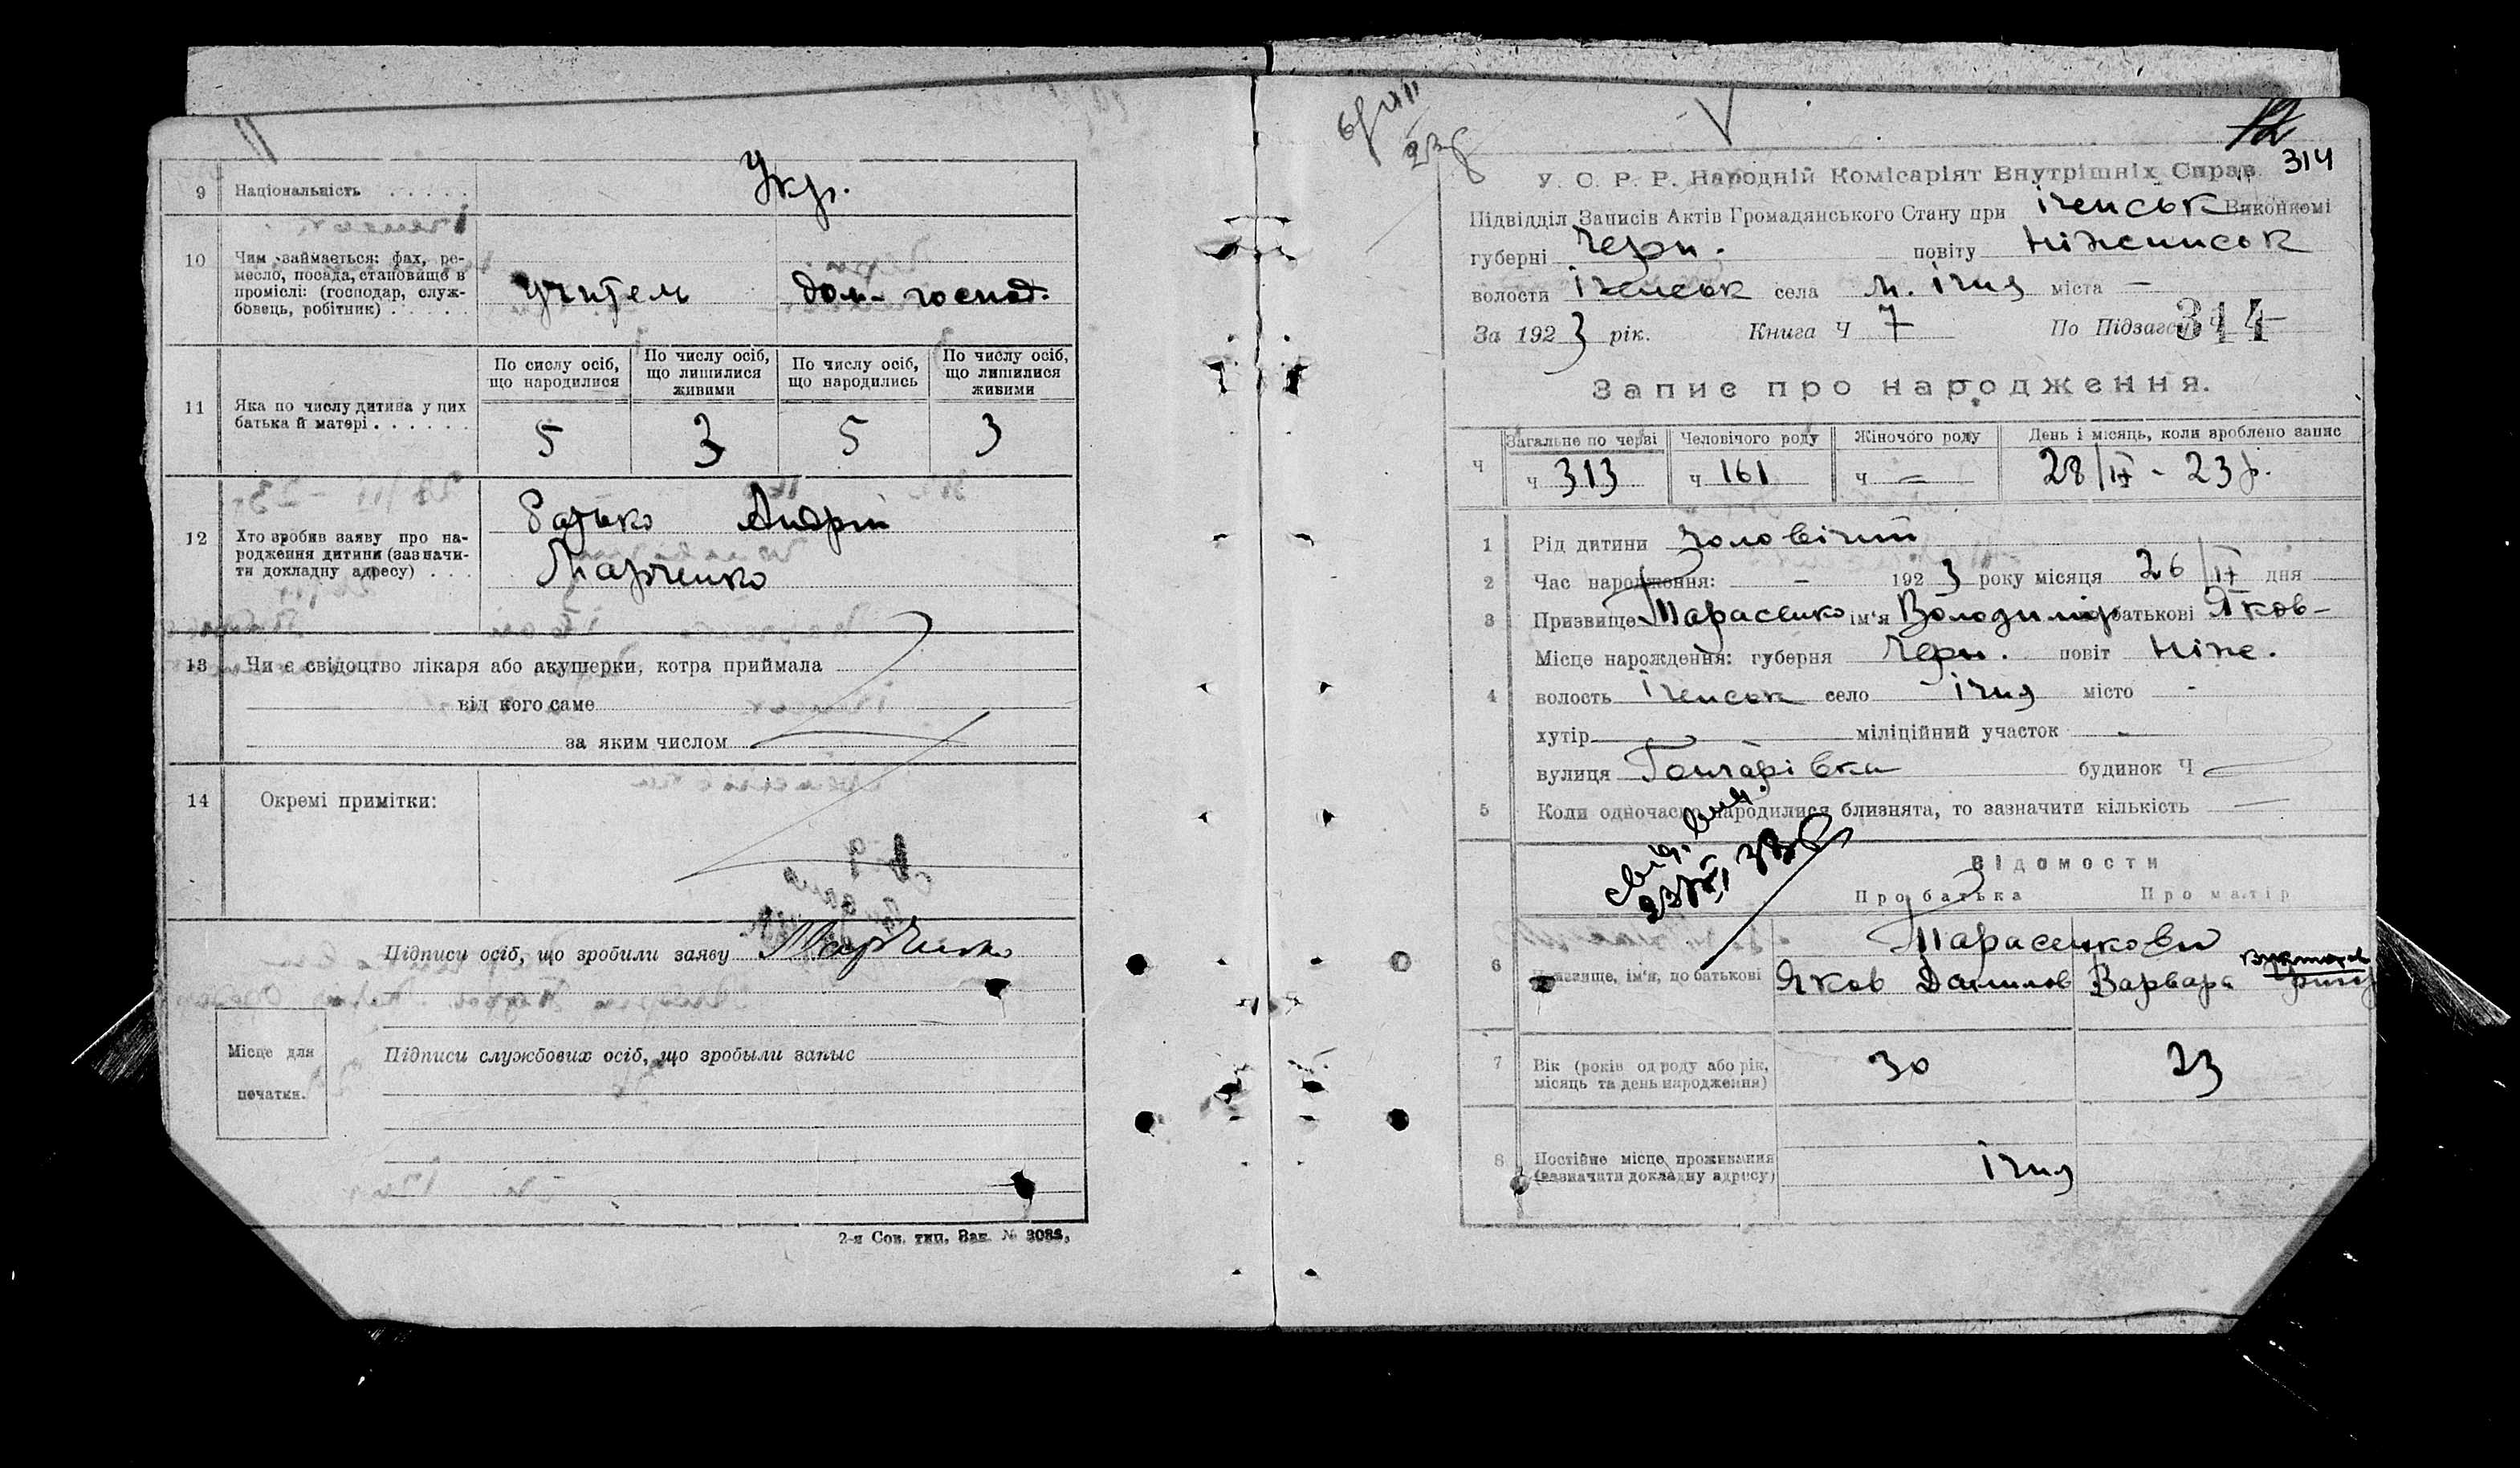 9 Національність . . . . . Укр.
10 Чим займається: фах, ре-
месло, посада, становище в
проміслі: (господар, служ-
бовець, робітник) . . . . . учитель дом. господ.
По сислу осіб, що народилися
По числу осіб, що лишилися живими
По числу осіб, що народились
По числу осіб, що лишилися живими
11 Яка по числу дитина у цих
батька й матері . . . . . . 5 3 5 3
12 Хто зробив заяву про на-
родження дитини (зазначи-
ти докладну адресу) . . .
Батько Андрій
Марченко
13 Чи є свідоцтво лікаря або акушерки, котра приймала
від кого саме
за яким числом
14 Окремі примітки:
Підписи осіб, що зробили заяву Марченко
Місце для
печатки.
Підписи службових осіб, що зробыли запыс
2-я Сов. тип. Зак. № 3085,
314
У. С. Р. Р. Народній Комісаріят Внутрішніх Справ.
Підвідділ Записів Актів Громадянського Стану при Іченськ Виконкомі
губерні Черн. повіту Ніженськ
волости Іченськ села м. Ічня міста —
За 1923 рік. Книга Ч 7 По Підзагсу Ч 314
Запис про народження.
Загальне по черзі Человічого роду Жіночого роду День і місяць, коли зроблено запис
Ч Ч 313 Ч 161 Ч — 28/IX - 23 р.
1 Рід дитини чоловічий
2 Час народження: — 1923 року місяця 26/IX дня
3 Призвище Тарасенко ім'я Володимір по батькові Яков-
4 Місце народження: губерня Черн. повіт Ніже.
волость Іченськ село Ічня місто -
хутір міліційний участок -
вулиця Гончарівка будинок Ч
5 Коли одночасно народилися близнята, то зазначити кількість —
Відомости
Про батька Про матір
6 Призвище, ім'я, по батькові
Тарасенкови
Яков Данилов Варвара
7 Вік (років од роду або рік,
місяць та день народження) 30 23
8 Постійне місце проживання
(зазначити докладну адресу) Ічня